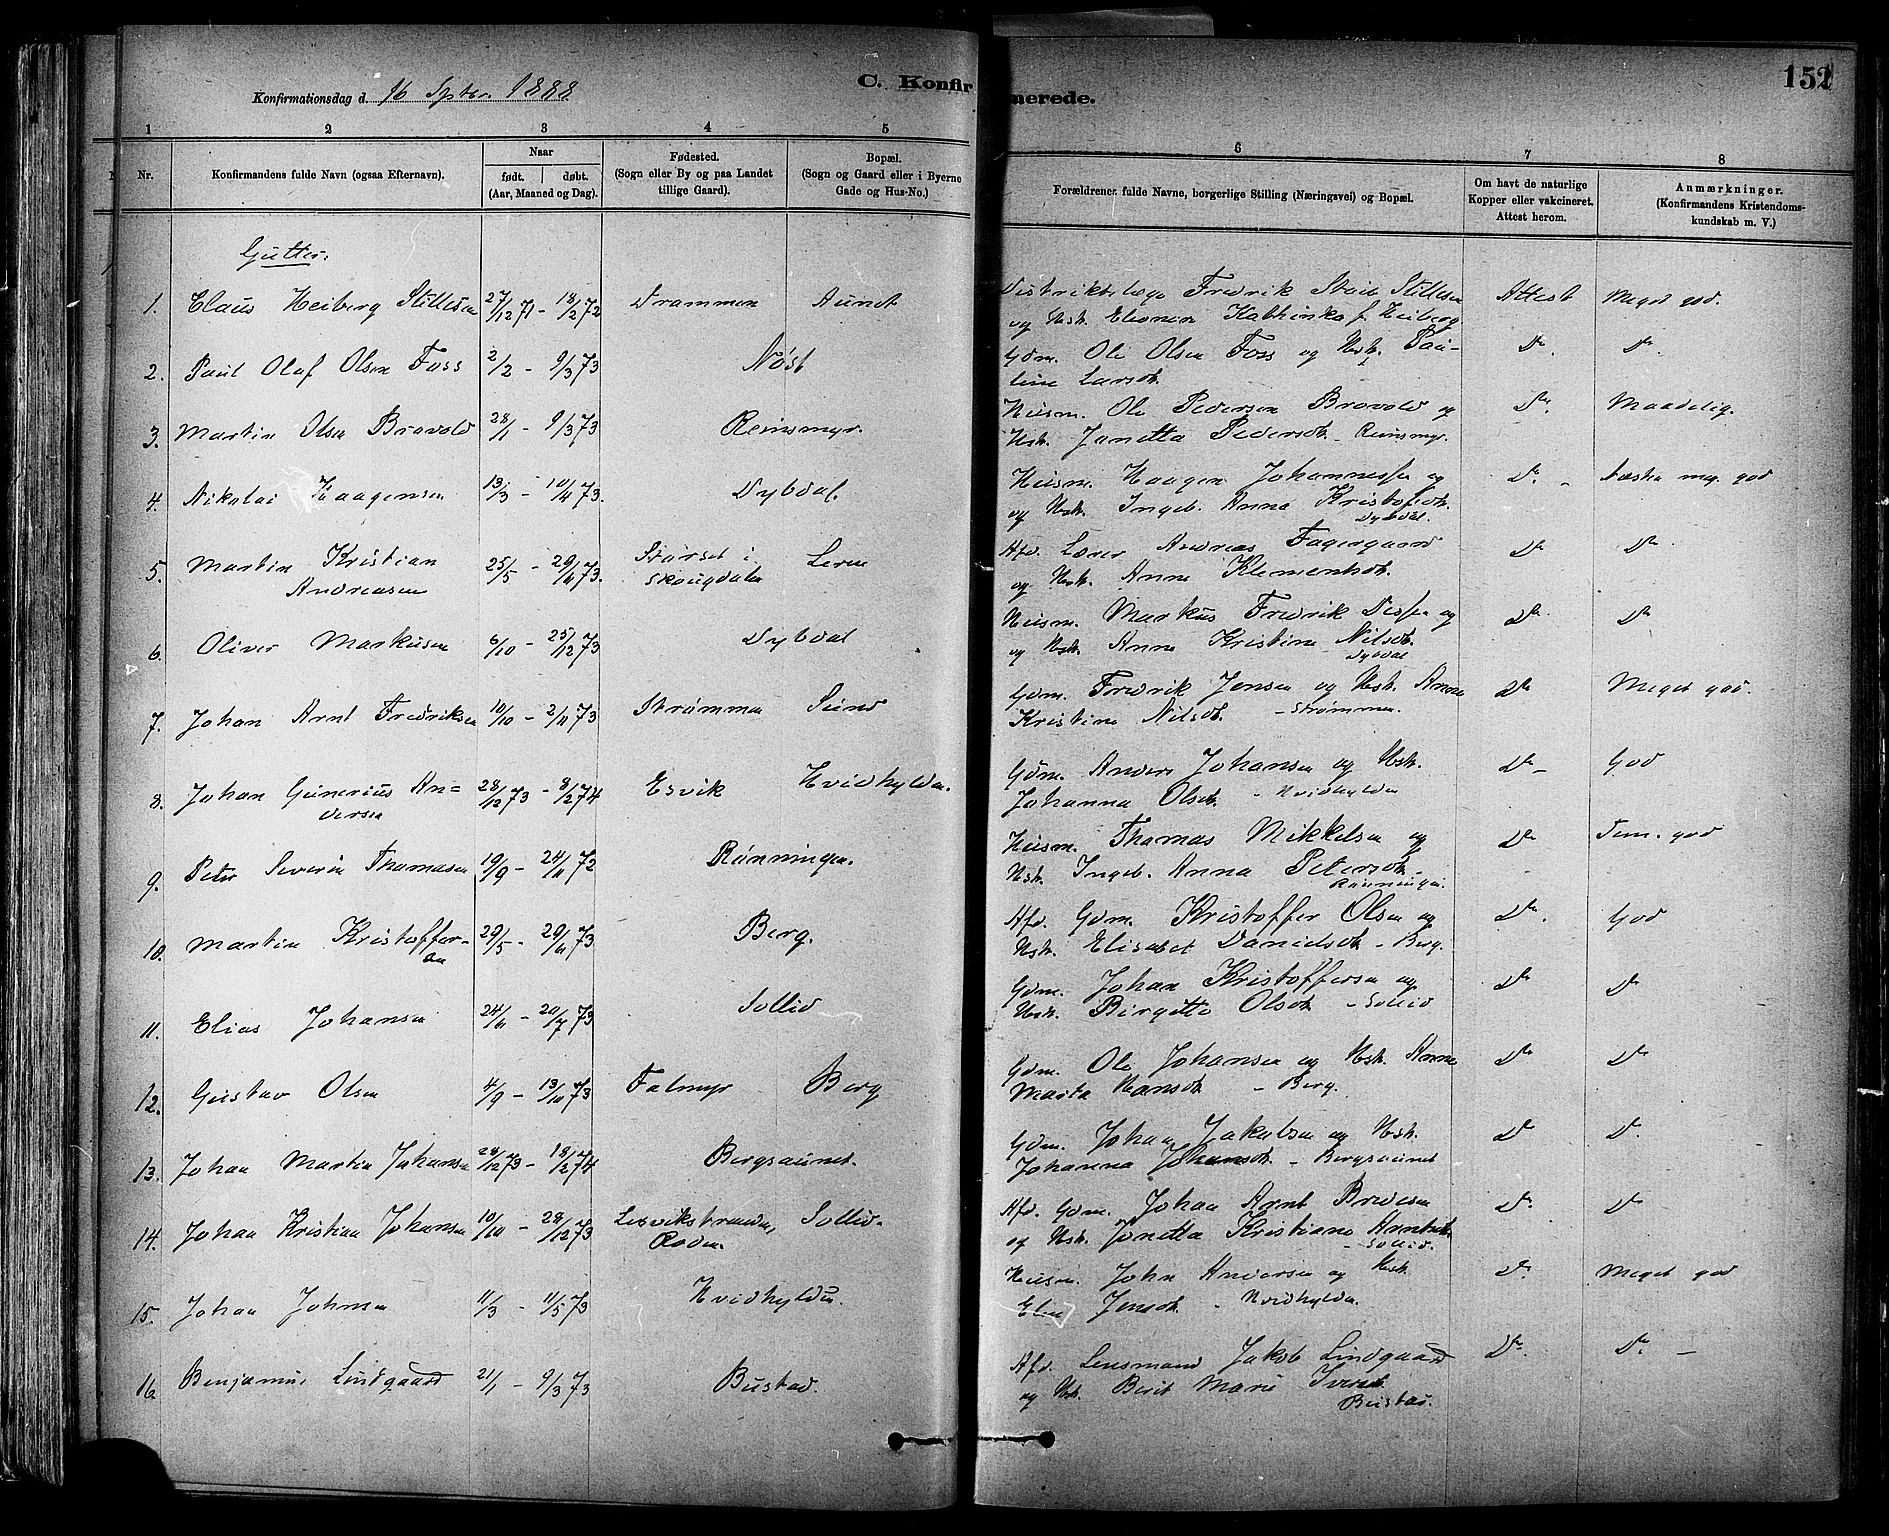 Konfirmationsdag d. 16 Septbr. 1888.
C. Konfirmerede.
152
1 2 3 4 5 6 7 8
Nr.
Konfirmandens fulde Navn (ogsaa Efternavn).
Naar
født. døbt.
(Aar, Maaned og Dag).
Fødested.
(Sogn eller By og paa Landet
tillige Gaard).
Bopæl.
(Sogn og Gaard eller i Byerne
Gade og Hus-No.)
Forældrenes fulde Navne, borgerlige Stilling (Næringsvei) og Bopæl.
Om havt de naturlige
Kopper eller vakcineret.
Attest herom.
Anmærkninger.
(Konfirmandens Kristendoms-
kundskab m. V.)
Gutter:
1. Claus Heiberg Stillesen 27/12 71 - 18/2 72 Drammen Aunet Distriktslæge Fredrik Stillesen Attest Meget god.
og Hstr. Eleonora Kathinka f. Heiberg
2. Paul Olaf Olsen Foss 2/2 - 9/3 73 Nøst Gdm. Ole Olsen Foss og Hstr. Pau- Do. Do.
line Larsdtr.
3. Martin Olsen Bravold 28/1 - 9/3 73 Reinsmyr. Husm. Ole Pedersen Bravold og Do. Maadelig.
Hstr. Janetta Pedersdtr. - Reinsmyr.
4. Nikolai Haagensen 13/3 - 10/4 73. Dybdal Husm. Haagen Johannessen og Do. - Næsten meg. god
og Hstr. Ingeb. Anna Kristofdtr.
Dybdal.
5. Martin Kristian 25/5 - 29/6 73. Størset i Leren Afd. Lærer Andreas Fagergaard Do Do.
Andreasen Skougdalen og Hstr. Anne Klementsdtr.
6. Oliver Markusen 6/10 - 25/12 73 Dybdal Husm. Markus Fredrik og Do Do
og Hstr. Anne Kristine Nilsdtr.
Dybdal
7. Johan Arnt Fredriksen 10/10 - 2/11 73 Strømmen Sund Gdm. Fredrik Jensen og Hstr. Anne Do Meget god.
Kristine Nilsdtr. - Strømmen.
8. Johan Gunerius An= 28/12 73 - 8/2 74 Esvik Hvidhylden. Gdm. Anders Johansen og Hstr. Do - God
dersen Johanna Olsdtr. - Hvidhylden
9. Peter Severin Thomasen 19/9 - 24/11 72 Rønningen. Husm. Thomas Mikkelsen og Do Tem. god
Hstr. Ingeb. Anna Petersdtr. -
Rønningen.
10. Martin Kristoffer- 29/5 - 29/6 73 Berg. Afd. Gdm. Kristoffer Olsen og Do. God
sen Hstr. Elisabet Danielsdtr. - Berg.
11. Elias Johansen 24/6 - 20/7 73 Sollid Gdm. Johan Kristoffersen og Do Do
Hstr. Birgitte Olsdtr. - Sollid
12. Gustav Olsen 4/9 - 13/10 73 Falmyr Berg Gdm. Ole Johansen og Hstr. Anne Do Do
Marta Hansdtr. - Berg.
13. Johan Martin Johansen 28/12 73 - 18/2 74 Bergsaunet. Gdm. Johan Jakobsen og Hstr. Do Do.
Johanna Johansdtr. - Bergsaunet
14. Johan Kristian Johansen 10/10 - 28/12 73 Lexvikstranden, Sollid. Afd. Gdm. Johan Arnt Bredesen Do. Do
Roden. og Hstr. Jonetta Kristiane
- Sollid.
15. Johan Johnsen 11/3 - 11/5 73 Hvidhylden. Husm. John Andersen og Hstr. Do. Meget god
Elen Jensdtr. - Hvidhylden.
16 Benjamin Lindgaard 21/1 - 9/3 73 Bustad. Afd. Lensmand Jakob Lindgaard Do. Do. -
og Hstr. Berit Marie Iversdtr.
Bustad.